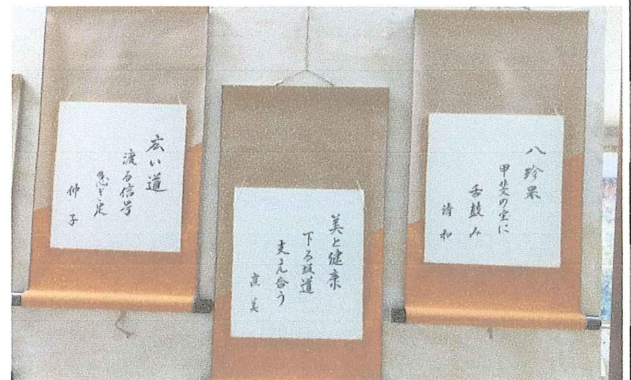 八珍果
甲斐の宝に
舌鼓み
美と健康
下る坂道
支え合う
広い道
渡る信号
急ぎ足